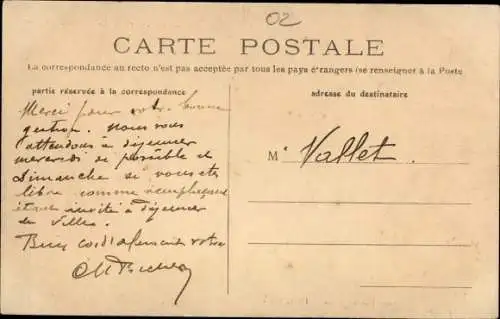 02
CARTE POSTALE
La correspondance au recto n'est pas acceptée par tous les pays étrangers (se renseigner à la Poste
partie réservée à la correspondance
adresse du destinataire
Merci pour votre bonne
gestion. Nous vous
attendons à déjeuner
mercredi si possible et
Dimanche si vous êtes
libre comme remplaçant
étant invité à déjeuner
en Ville.
Bien cordialement votre
M Vallet